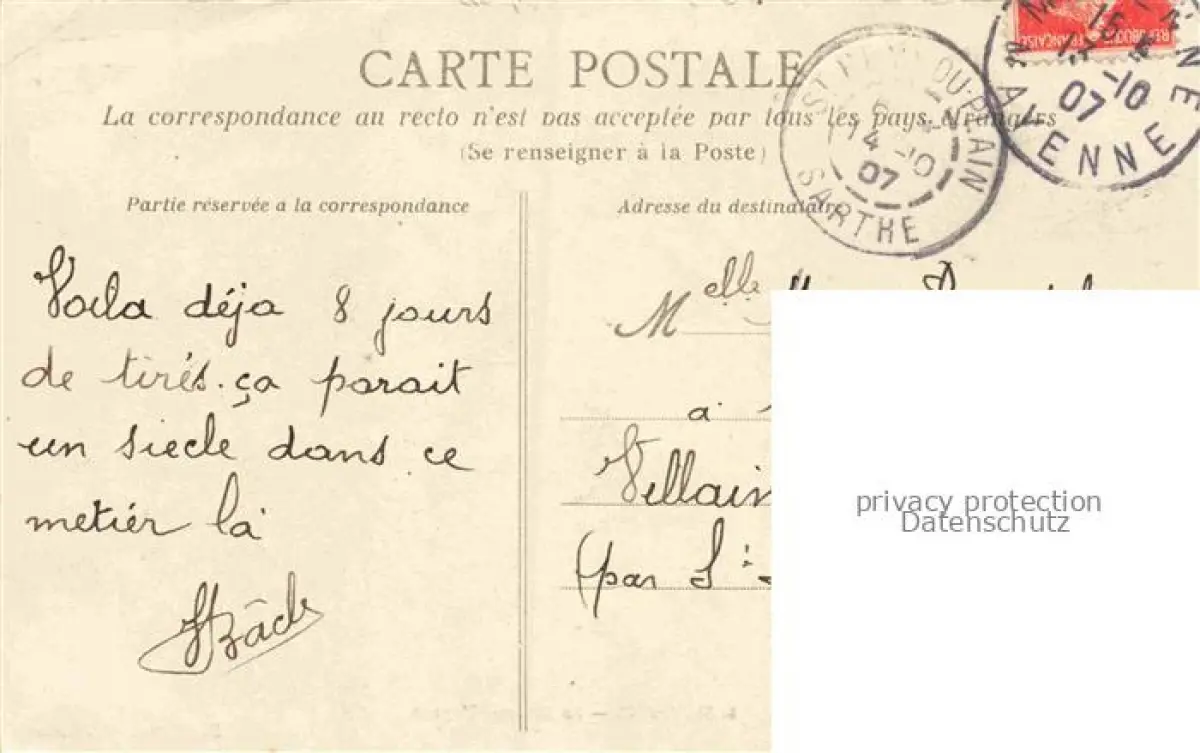 CARTE POSTALE
La correspondance au recto n'est pas acceptée par tous les pays étrangers
(Se renseigner à la Poste)
Partie réservée a la correspondance
Voila déja 8 jours
de tirés. ça parait
un siecle dans ce
metier là
Adresse du destinataire
Melle
a
Villain
(par S
DU-PLAIN
14 -10
07
SARTHE
15
-10
07
YENNE
REPUBLIQUE FRANÇAISE
privacy protection
Datenschutz